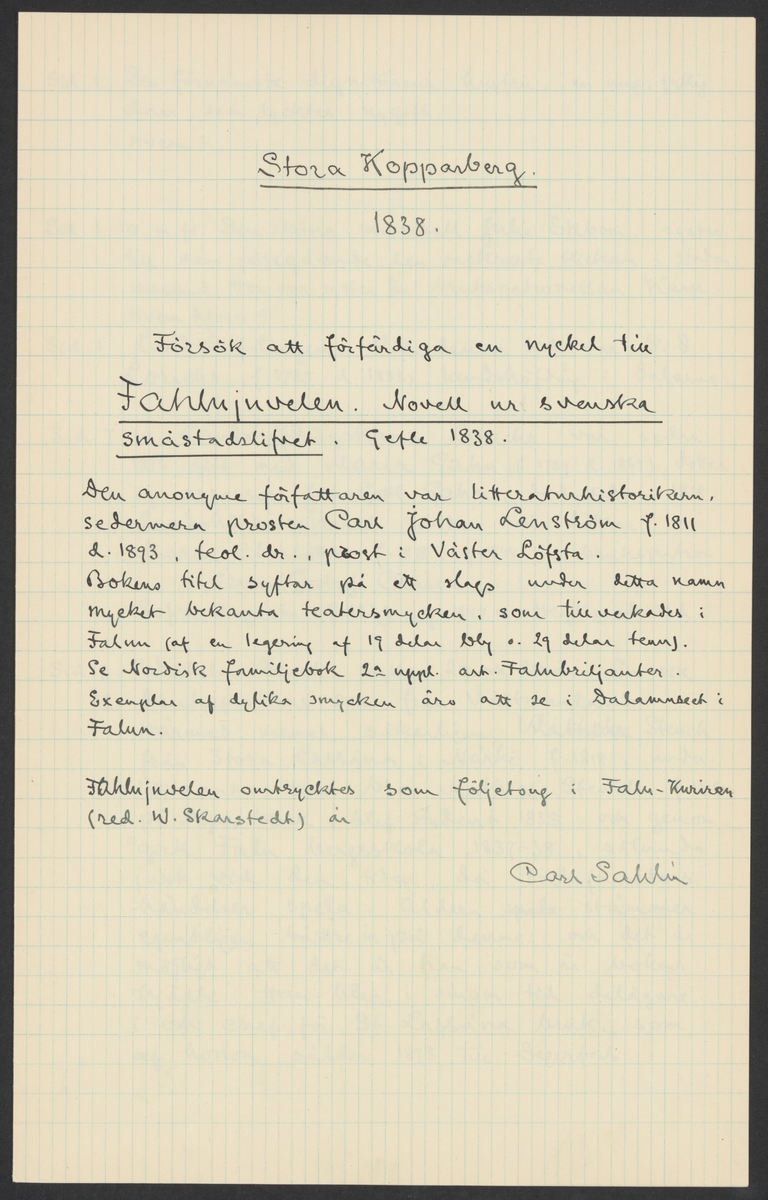 Stora Kopparberg.
1838.
Försök att förfärdiga en nyckel till
Fahlujuvelen. Novell ur svenska
småstadslifvet. Gefle 1838.
Den anonyme författaren var litteraturhistorikern,
sedermera prosten Carl Johan Lenström f. 1811
d. 1893, teol. dr., prost i Väster Löfsta.
Bokens titel syftar på ett slags under detta namn
mycket bekanta teatersmycken, som tillverkades i
Falun (af en legering af 19 delar bly o. 29 delar tenn).
Se Nordisk familjebok 2a uppl. art. Falubriljanter.
Exemplar af dylika smycken äro att se i Dalamuseet i
Falun.
Fahlujuvelen omtrycktes som följetong i Falu-Kuriren
(red. W. Skarstedt) år
Carl Sahlin